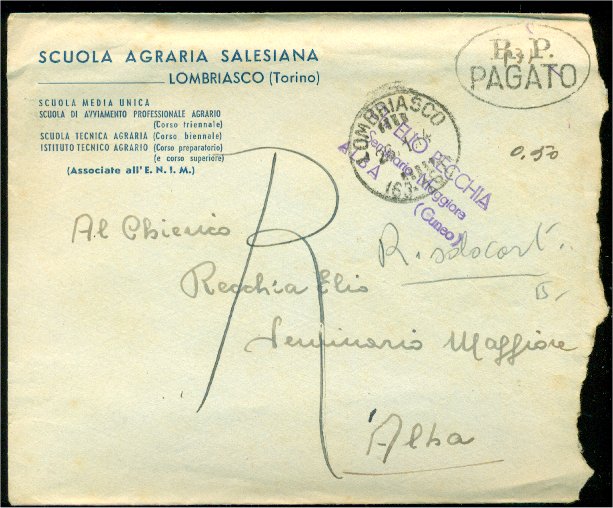 SCUOLA AGRARIA SALESIANA
LOMBRIASCO (Torino)
SCUOLA MEDIA UNICA
SCUOLA DI AVVIAMENTO PROFESSIONALE AGRARIO
(Corso triennale)
SCUOLA TECNICA AGRARIA (Corso biennale)
ISTITUTO TECNICO AGRARIO (Corso preparatorio)
(e corso superiore)
(Associate all'E. N. I. M.)
P. P.
PAGATO
LOMBRIASCO
ELIO RECCHIA
Seminario Maggiore
ALBA (Cuneo)
0,50
R
Al Chierico
Recchia Elio
Seminario Maggiore
Alba